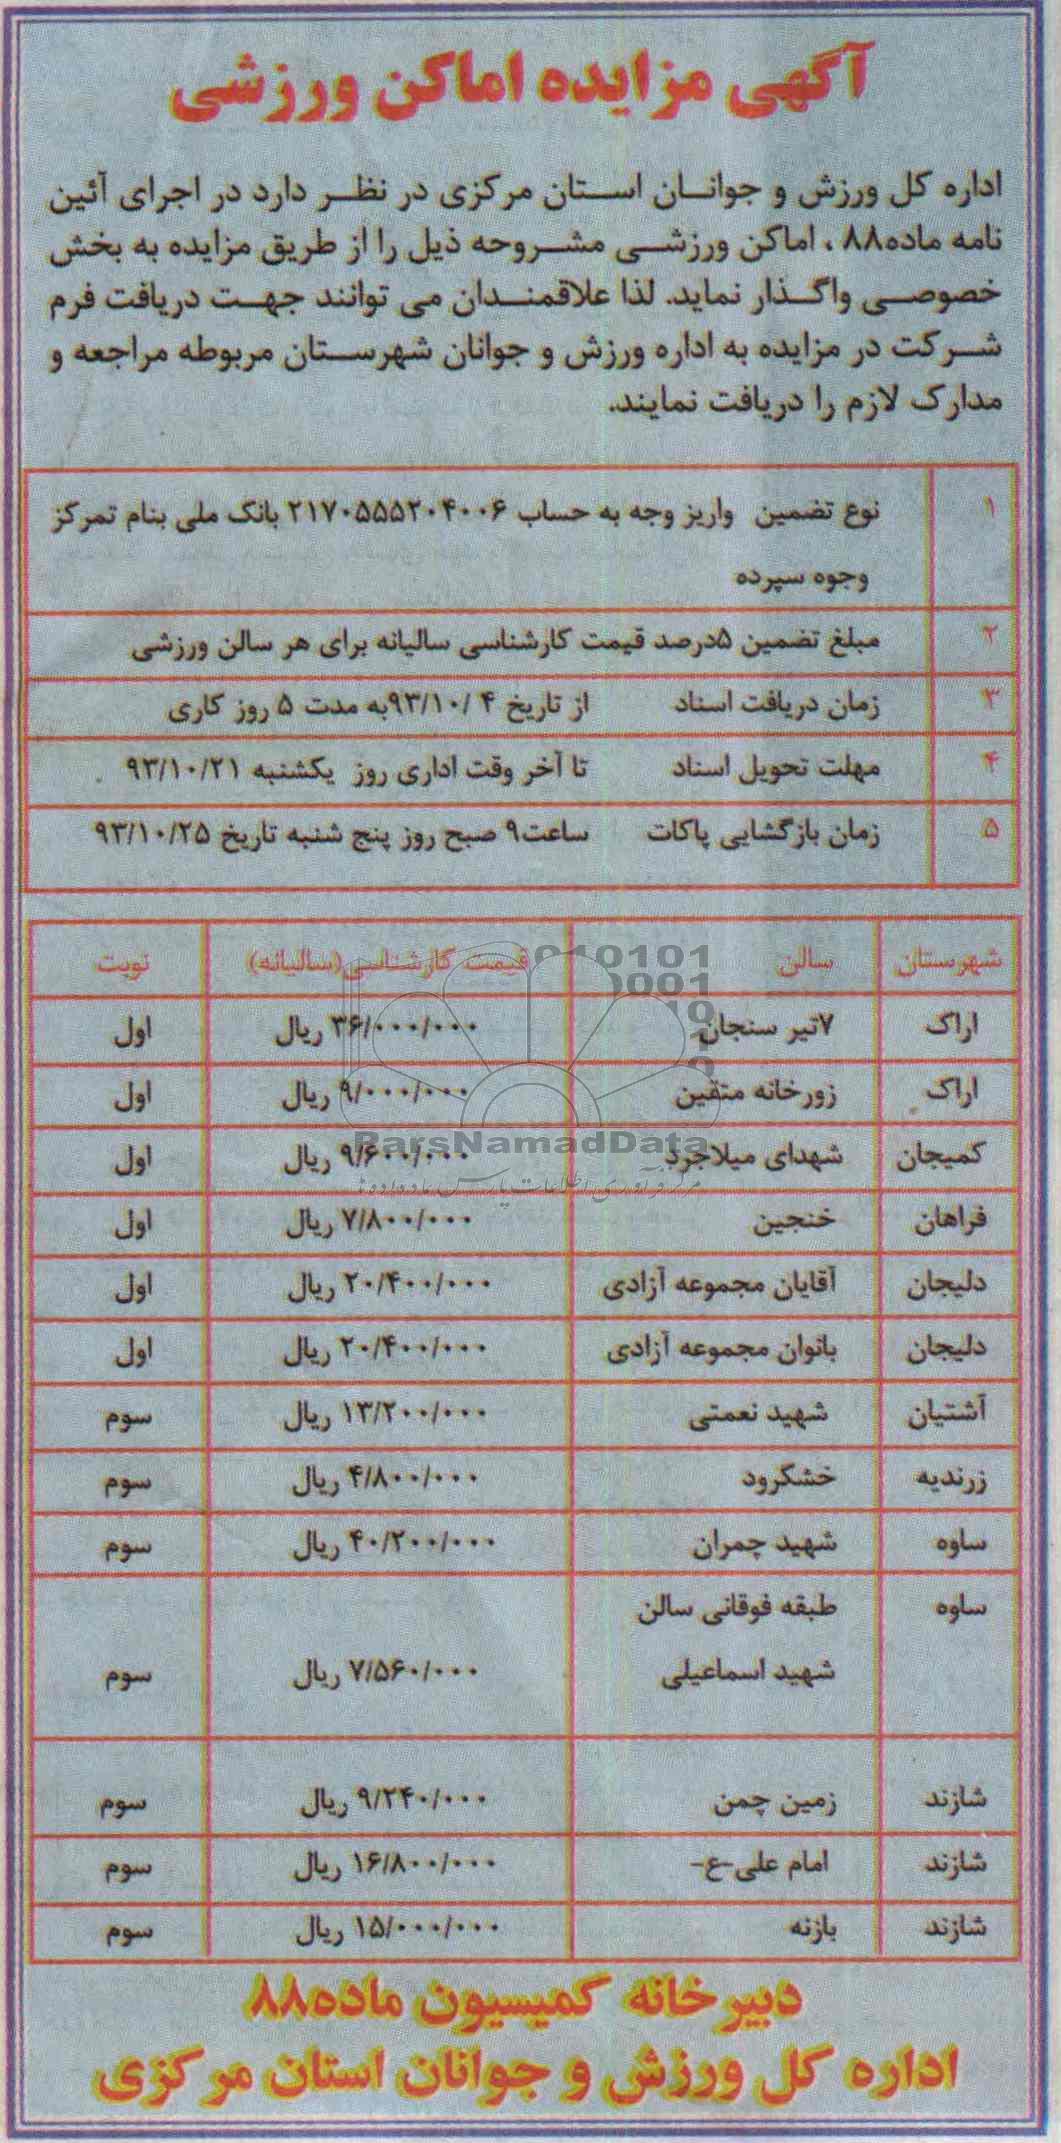 آگهی مزایده اماکن ورزشی
اداره کل ورزش و جوانان استان مرکزی در نظر دارد در اجرای آئین
نامه ماده۸۸ ، اماکن ورزشی مشروحه ذیل را از طریق مزایده به بخش
خصوصی واگذار نماید. لذا علاقمندان می توانند جهت دریافت فرم
شرکت در مزایده به اداره ورزش و جوانان شهرستان مربوطه مراجعه و
مدارک لازم را دریافت نمایند.
۱ نوع تضمین واریز وجه به حساب ۲۱۷۰۵۵۵۲۰۴۰۰۶ بانک ملی بنام تمرکز
وجوه سپرده
۲ مبلغ تضمین ۵درصد قیمت کارشناسی سالیانه برای هر سالن ورزشی
۳ زمان دریافت اسناد از تاریخ ۴ /۹۳/۱۰به مدت ۵ روز کاری
۴ مهلت تحویل اسناد تا آخر وقت اداری روز یکشنبه ۹۳/۱۰/۲۱
۵ زمان بازگشایی پاکات ساعت۹ صبح روز پنج شنبه تاریخ ۹۳/۱۰/۲۵
شهرستان سالن قیمت کارشناسی(سالیانه) نوبت
اراک ۷تیر سنجان ۳۶/۰۰۰/۰۰۰ ریال اول
اراک زورخانه متقین ۹/۰۰۰/۰۰۰ ریال اول
کمیجان شهدای میلاجرد ۹/۶۰۰/۰۰۰ ریال اول
فراهان خنجین ۷/۸۰۰/۰۰۰ ریال اول
دلیجان آقایان مجموعه آزادی ۲۰/۴۰۰/۰۰۰ ریال اول
دلیجان بانوان مجموعه آزادی ۲۰/۴۰۰/۰۰۰ ریال اول
آشتیان شهید نعمتی ۱۳/۲۰۰/۰۰۰ ریال سوم
زرندیه خشکرود ۴/۸۰۰/۰۰۰ ریال سوم
ساوه شهید چمران ۴۰/۲۰۰/۰۰۰ ریال سوم
ساوه طبقه فوقانی سالن
شهید اسماعیلی ۷/۵۶۰/۰۰۰ ریال سوم
شازند زمین چمن ۹/۲۴۰/۰۰۰ ریال سوم
شازند امام علی-ع- ۱۶/۸۰۰/۰۰۰ ریال سوم
شازند بازنه ۱۵/۰۰۰/۰۰۰ ریال سوم
دبیرخانه کمیسیون ماده۸۸
اداره کل ورزش و جوانان استان مرکزی
ParsNamadData
مرکز فرآوری اطلاعات پارس نماد داده ها